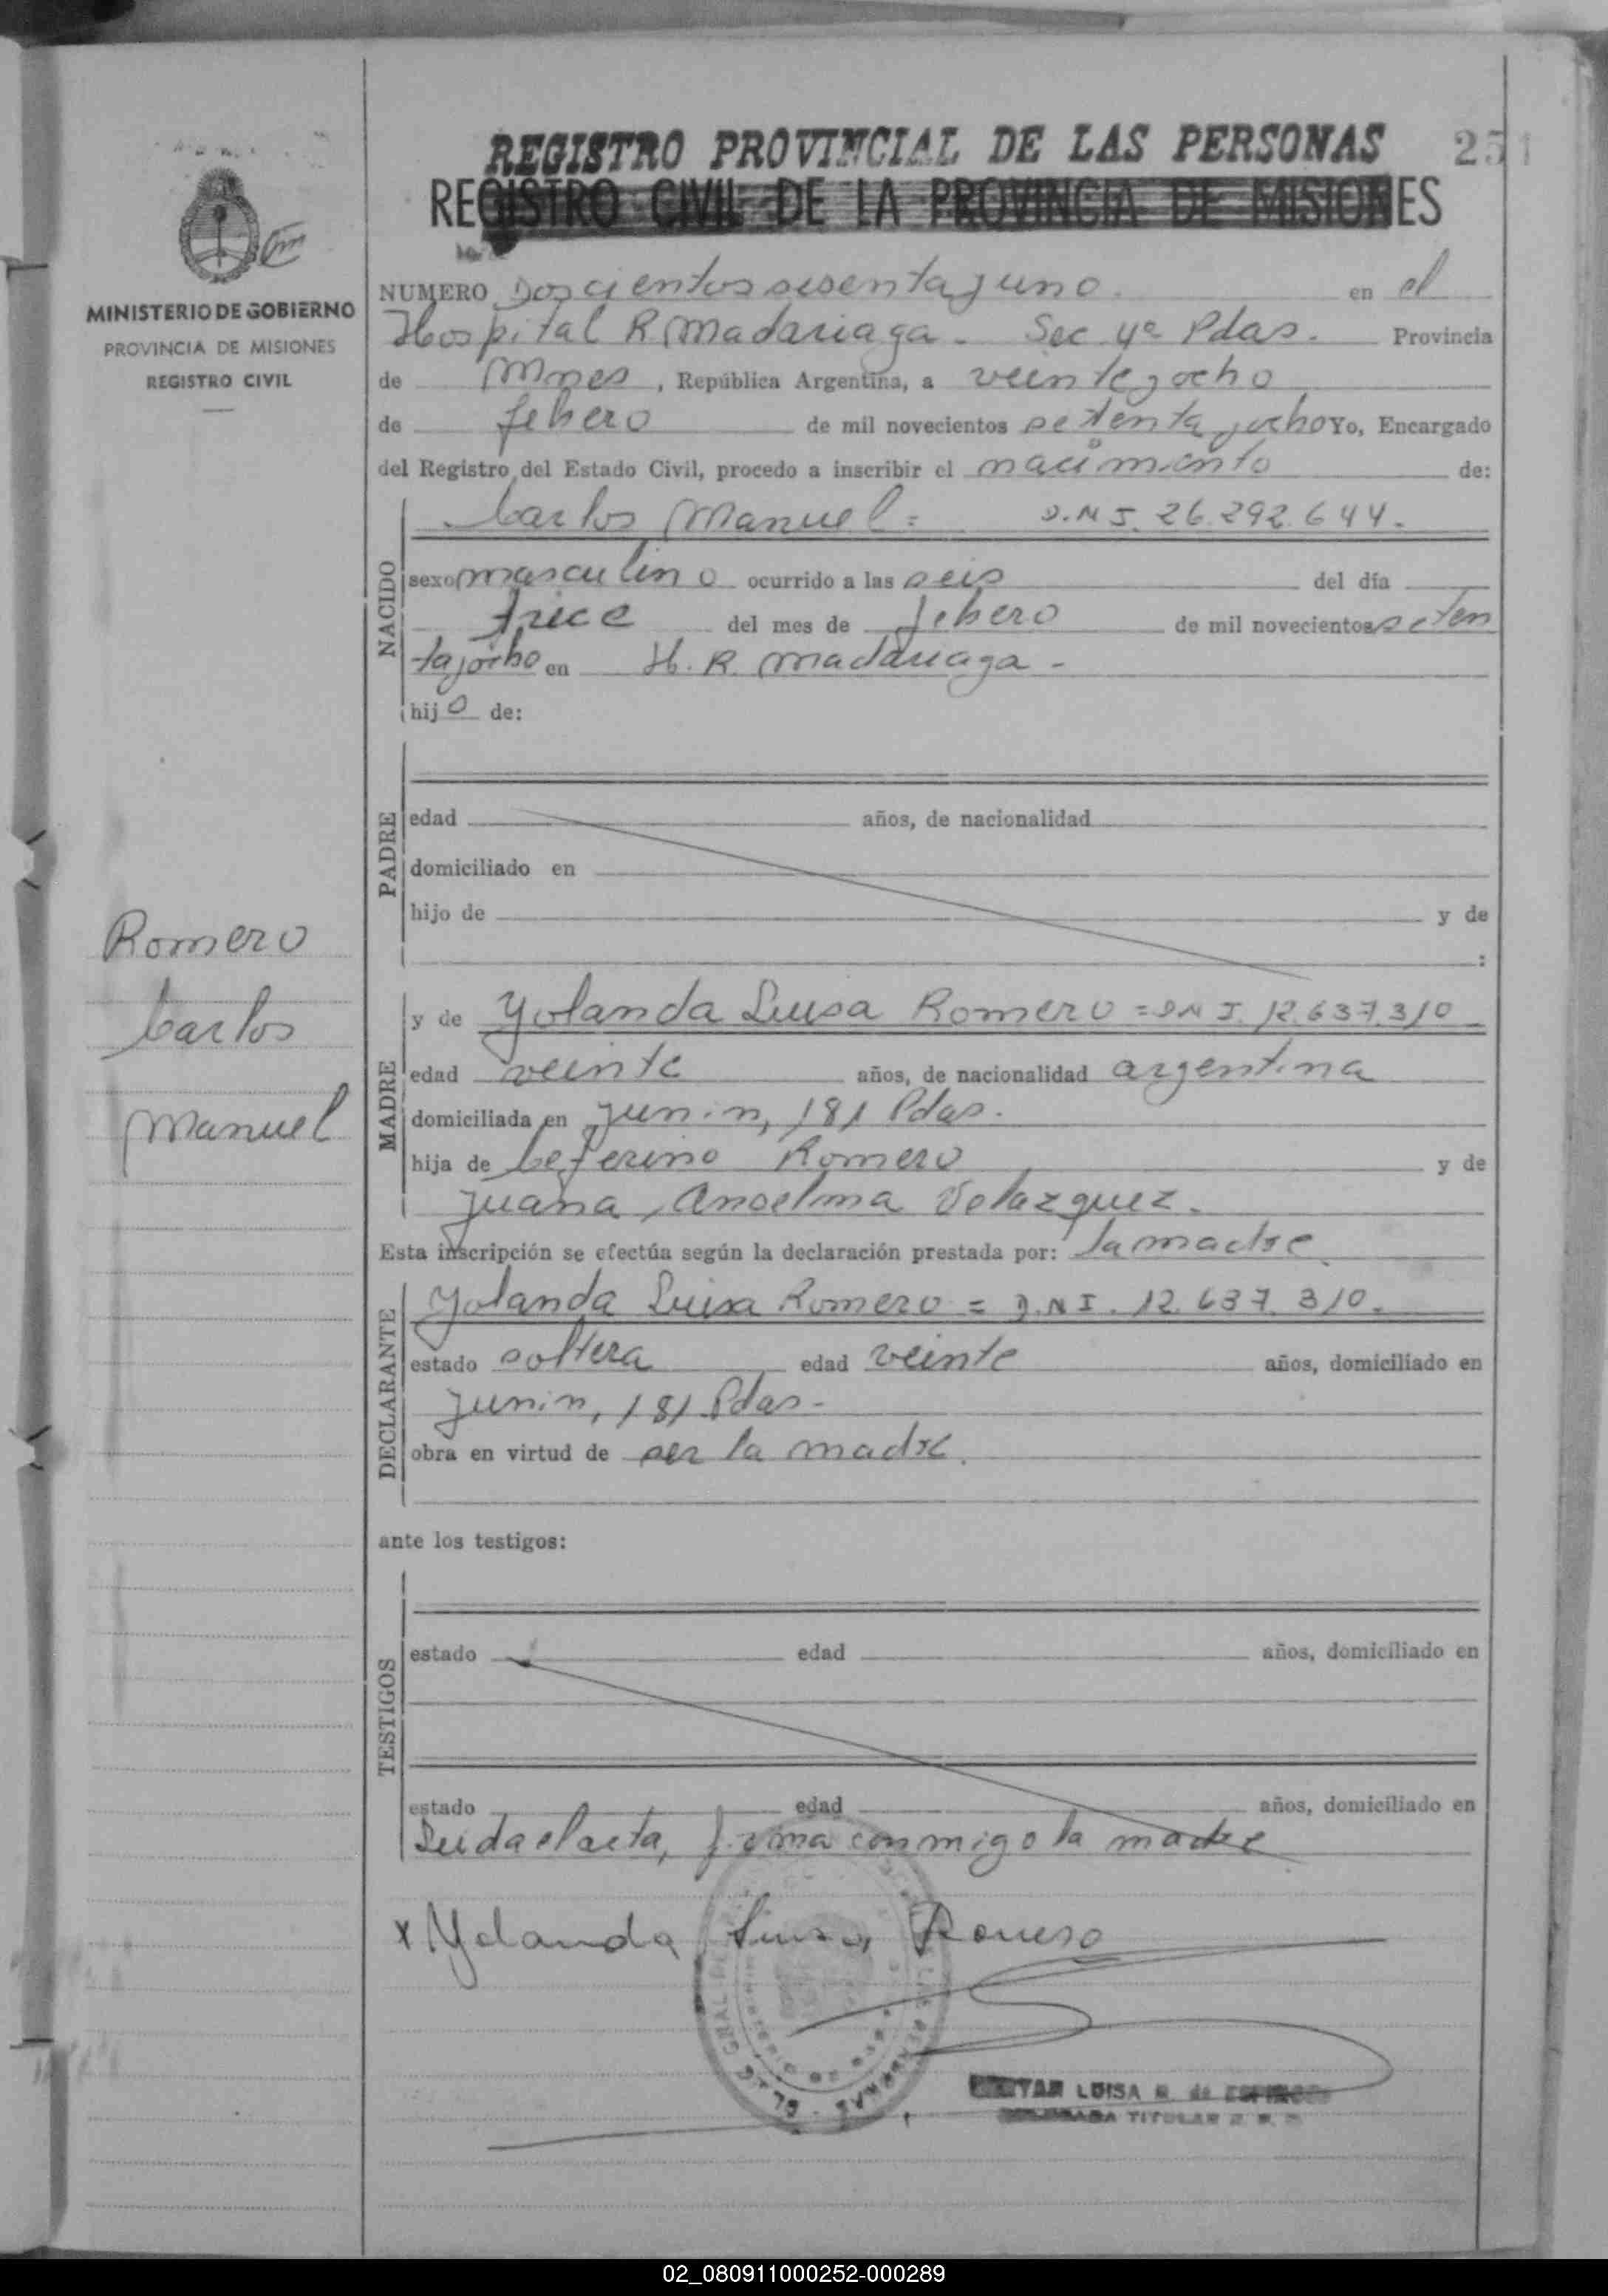 REGISTRO PROVINCIAL DE LAS PERSONAS
251
REGISTRO CIVIL DE LA PROVINCIA DE MISIONES
MINISTERIO DE GOBIERNO
PROVINCIA DE MISIONES
REGISTRO CIVIL
NUMERO Doscientos sesenta y uno. en el
Hospital R. Madariaga. Sec 4ª Pdas. Provincia
de Mnes, República Argentina, a veinte y ocho
de febero de mil novecientos setenta y ocho Yo, Encargado
del Registro del Estado Civil, procedo a inscribir el nacimiento de:
NACIDO
Carlos Manuel = D.N.I. 26.292.644.
sexo masculino ocurrido a las seis del día
trece del mes de febero de mil novecientos seten
ta y ocho en H. R. Madariaga -
hijo de:
PADRE
edad años, de nacionalidad
domiciliado en
hijo de y de
:
Romero
Carlos
Manuel
MADRE
y de Yolanda Luisa Romero = D.N.I. 12.637.310
edad veinte años, de nacionalidad argentina
domiciliada en Junin, 181 Pdas.
hija de Ceferino Romero y de
Juana Anselma Velazquez.
Esta inscripción se efectúa según la declaración prestada por: la madre
DECLARANTE
Yolanda Luisa Romero = D.N.I. 12.637.310.
estado soltera edad veinte años, domiciliado en
Junin, 181 Pdas-
obra en virtud de ser la madre.
ante los testigos:
TESTIGOS
estado edad años, domiciliado en
estado edad años, domiciliado en
Leida el acta, firma conmigo la madre
x Yolanda Luisa Romero
LUISA
TITULAR
02_080911000252-000289